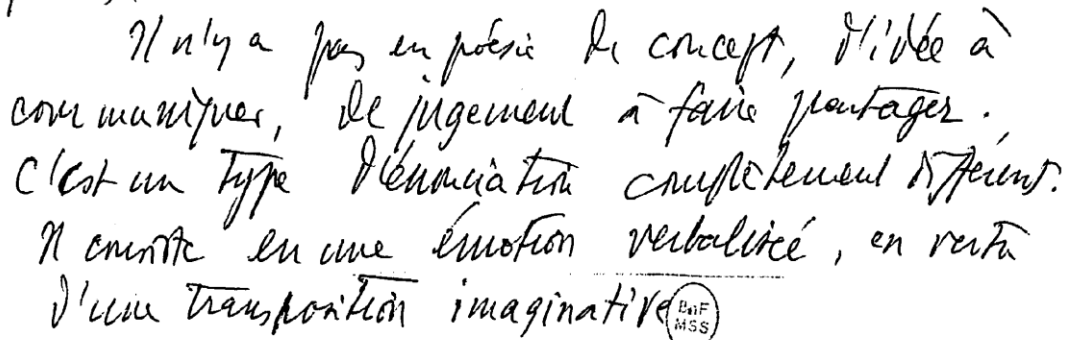 Il n'y a pas en poésie de concept, d'idée à
communiquer, de jugement à faire partager.
C'est un type d'énonciation complètement différent.
Il consiste en une émotion verbalisée, en vertu
d'une transposition imaginative
BnF
MSS